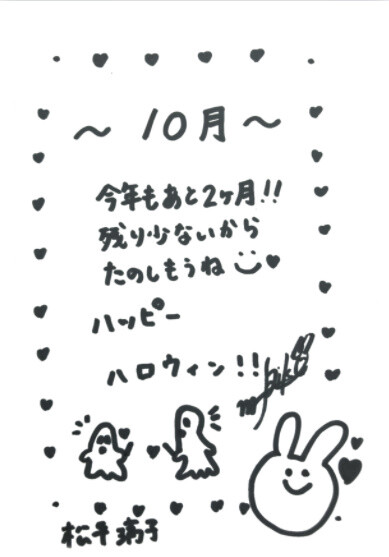 〜 10月 〜
今年もあと2ヶ月!!
残り少ないから
たのしもうね
ハッピー
ハロウィン!!
松平璃子